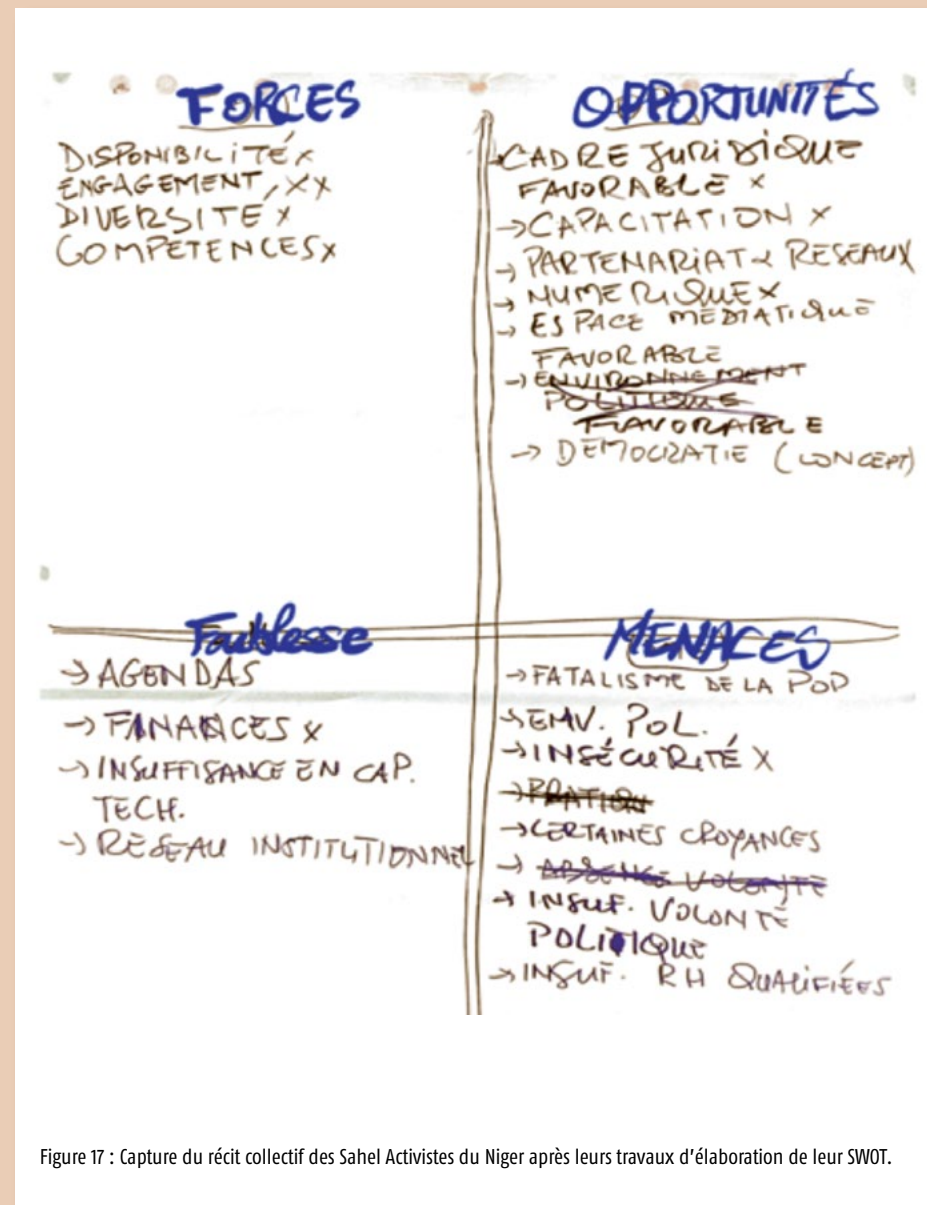 FORCES
DISPONIBILITÉ x
ENGAGEMENT, XX
DIVERSITE x
COMPETENCES x
OPPORTUNITÉS
CADRE JURIDIQUE
FAVORABLE x
→ CAPACITATION x
→ PARTENARIAT & RESEAUX
→ NUMERIQUE x
→ ESPACE MÉDIATIQUE
FAVORABLE
→ ENVIRONNEMENT
POLITIQUE
FAVORABLE
→ DEMOCRATIE (CONCEPT)
Faiblesse
→ AGENDAS
→ FINANCES x
→ INSUFFISANCE EN CAP.
TECH.
→ RÉSEAU INSTITUTIONNEL
MENACES
→ FATALISME DE LA POP
→ ENV. POL.
→ INSÉCURITÉ X
→ CERTAINES CROYANCES
→ ABSENCE VOLONTÉ
→ INSUF. VOLONTÉ
POLITIQUE
→ INSUF. RH QUALIFIÉES
Figure 17 : Capture du récit collectif des Sahel Activistes du Niger après leurs travaux d'élaboration de leur SWOT.